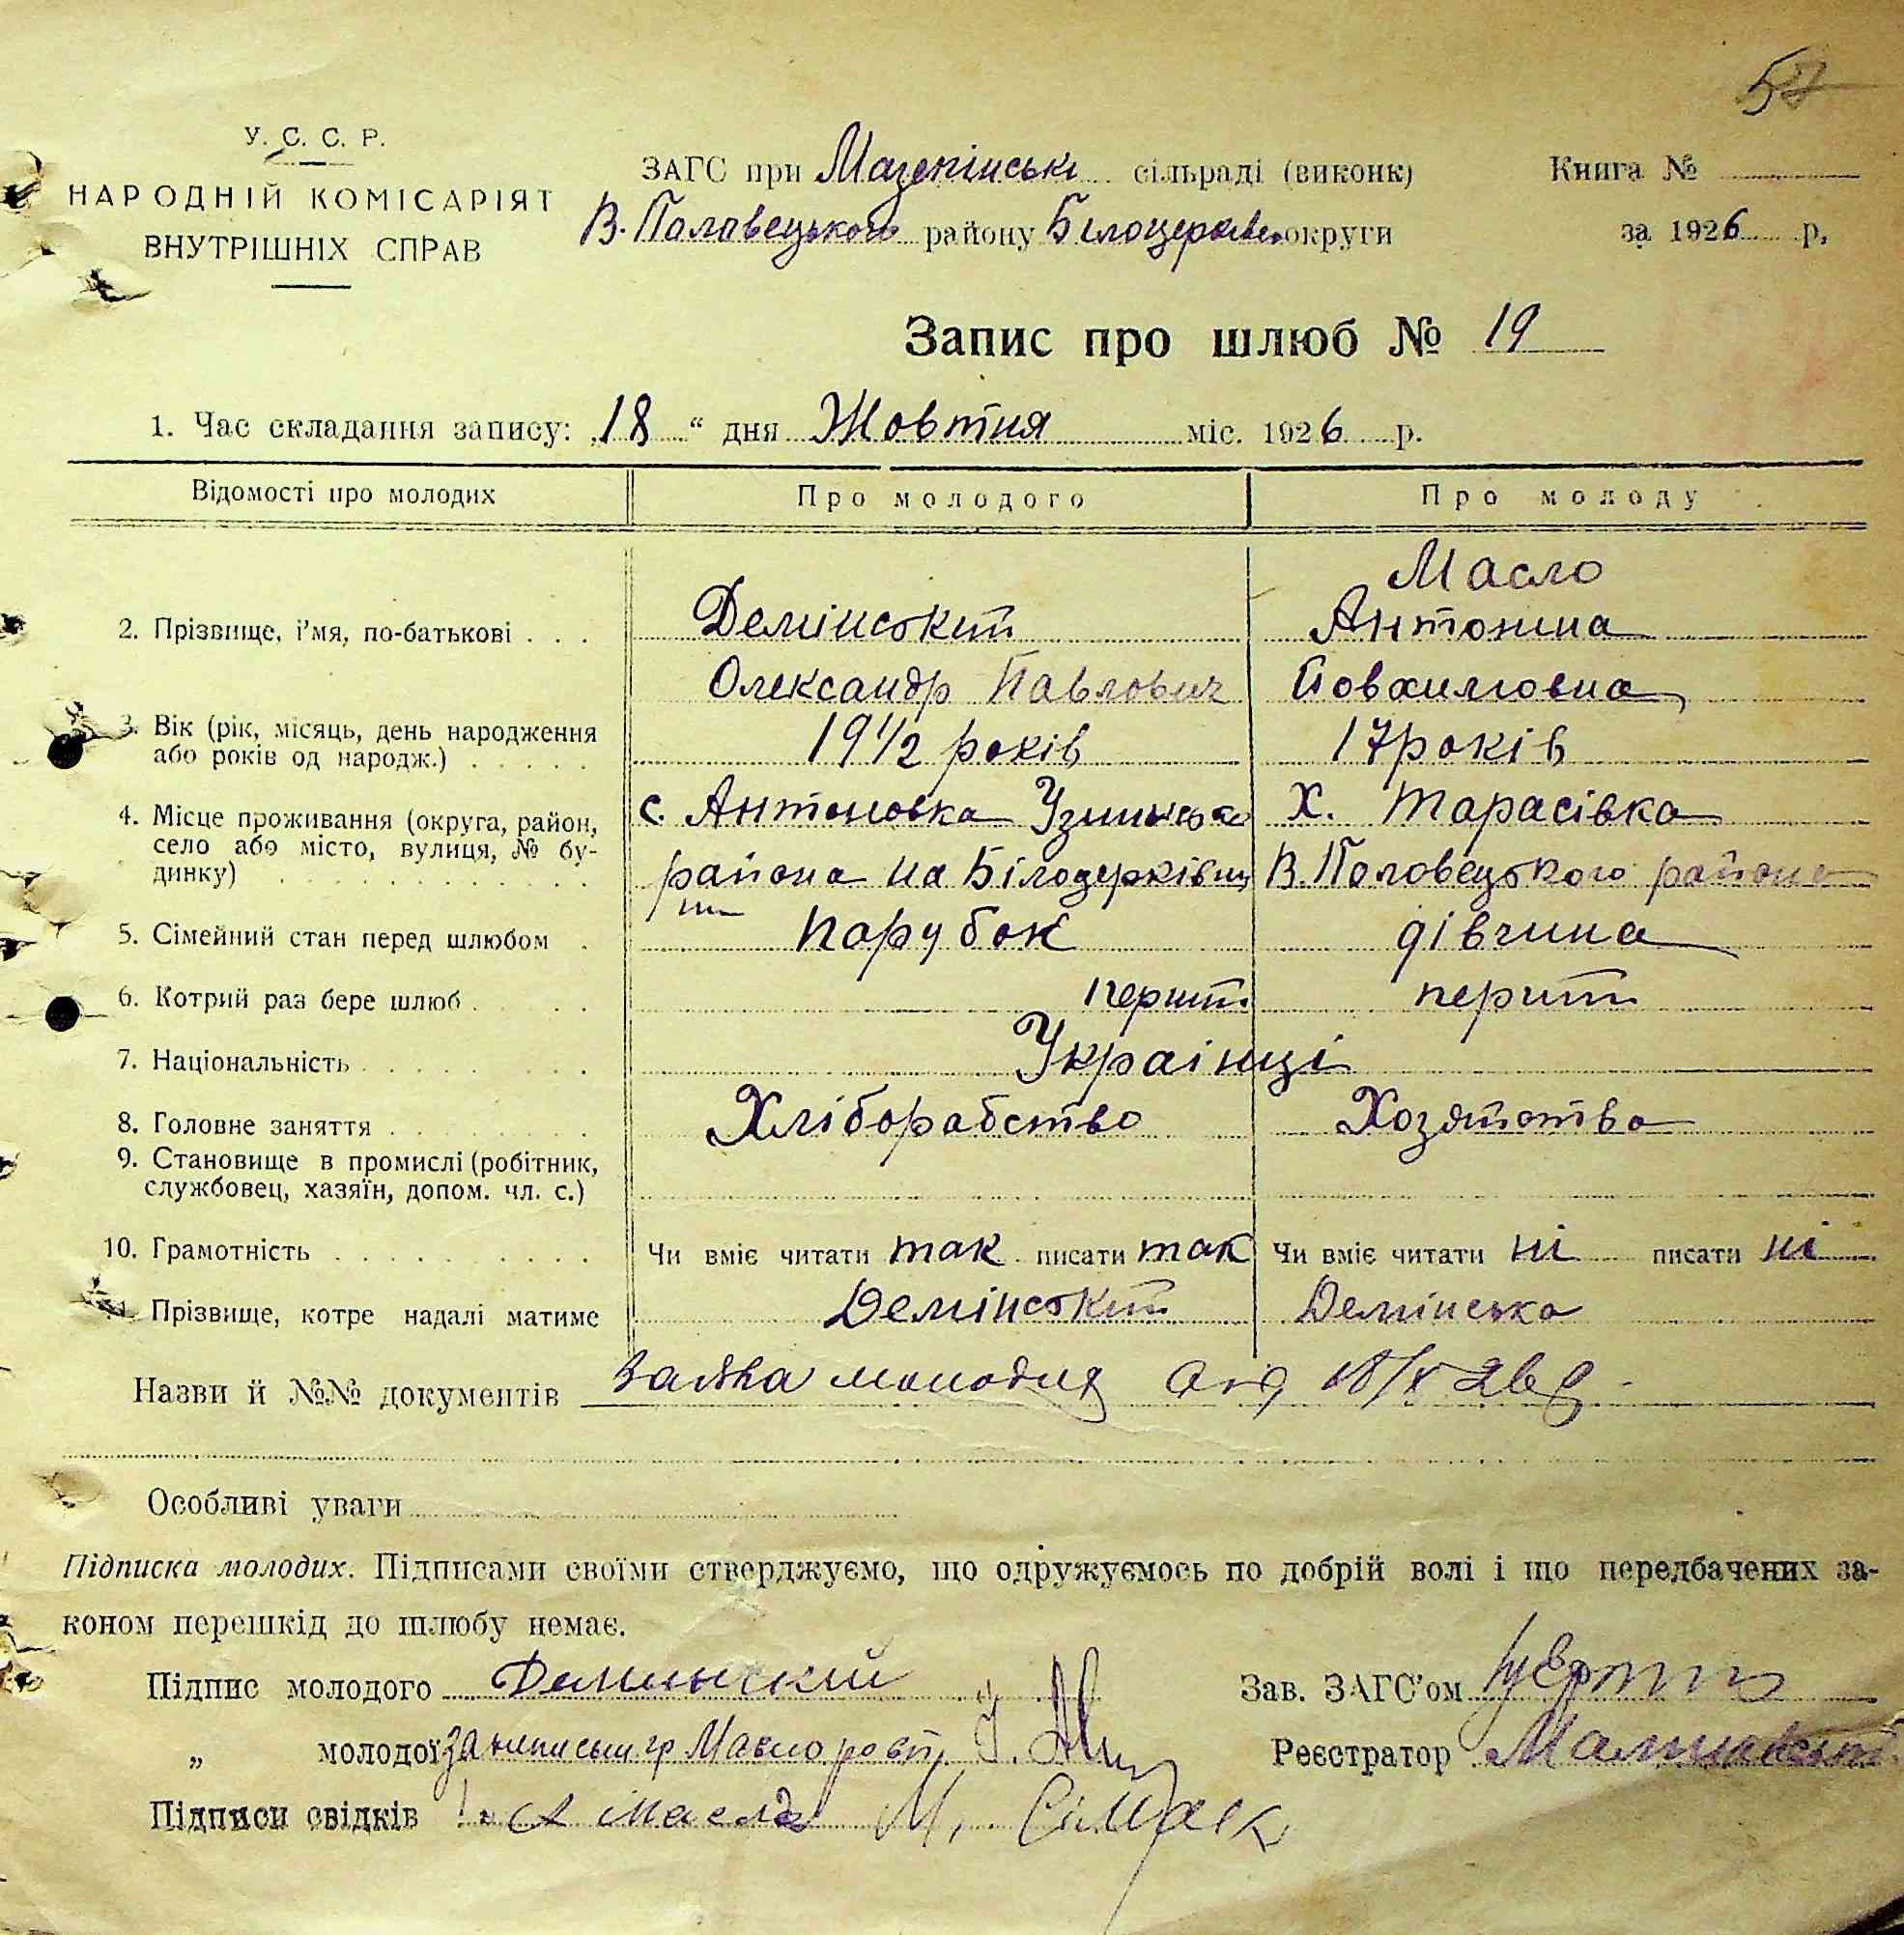 У. С. С. Р.
НАРОДНІЙ КОМІСАРІЯТ
ВНУТРІШНІХ СПРАВ
ЗАГС при Мазепінські сільраді (виконк)
В. Половецького району Білоцерківс округи
Книга №
за 1926 р.
Запис про шлюб № 19
1. Час складання запису: „18“ дня Жовтня міс. 1926 р.
Відомості про молодих Про молодого Про молоду
Масло
2. Прізвище, і’мя, по-батькові . . . Демінский Антонина
Олександр Павлович Йовхимовна
3. Вік (рік, місяць, день народження 19 1/2 років 17 років
або років од народж.)
4. Місце проживання (округа, район, с. Антоновка Узинсько Х. Тарасівка
село або місто, вулиця, № бу- района на Білоцерківщ В. Половецького района
динку) ни
5. Сімейний стан перед шлюбом парубок дівчина
6. Котрий раз бере шлюб перший перший
7. Національність Украінці
8. Головне заняття Хліборобство Хозяйство
9. Становище в промислі (робітник,
службовец, хазяїн, допом. чл. с.)
10. Грамотність Чи вміє читати так писати так Чи вміє читати ні писати ні
Прізвище, котре надалі матиме Демінский Демінська
Назви й №№ документів Заява молодих від 18/X 26 р.
Особливі уваги
Підписка молодих. Підписами своїми стверджуємо, що одружуємось по добрій волі і що передбачених за-
коном перешкід до шлюбу немає.
Підпис молодого Деминский Зав. ЗАГС’ом
„ молодої за неписьм гр Масло Реєстратор
Підписи свідків 1. Масло М.